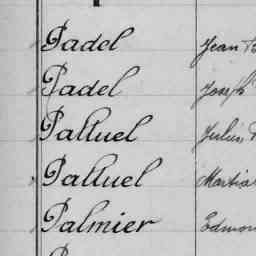 Padel Jean
Padel Joseph
Palluel Julien
Palluel Martial
Palmier Edmon